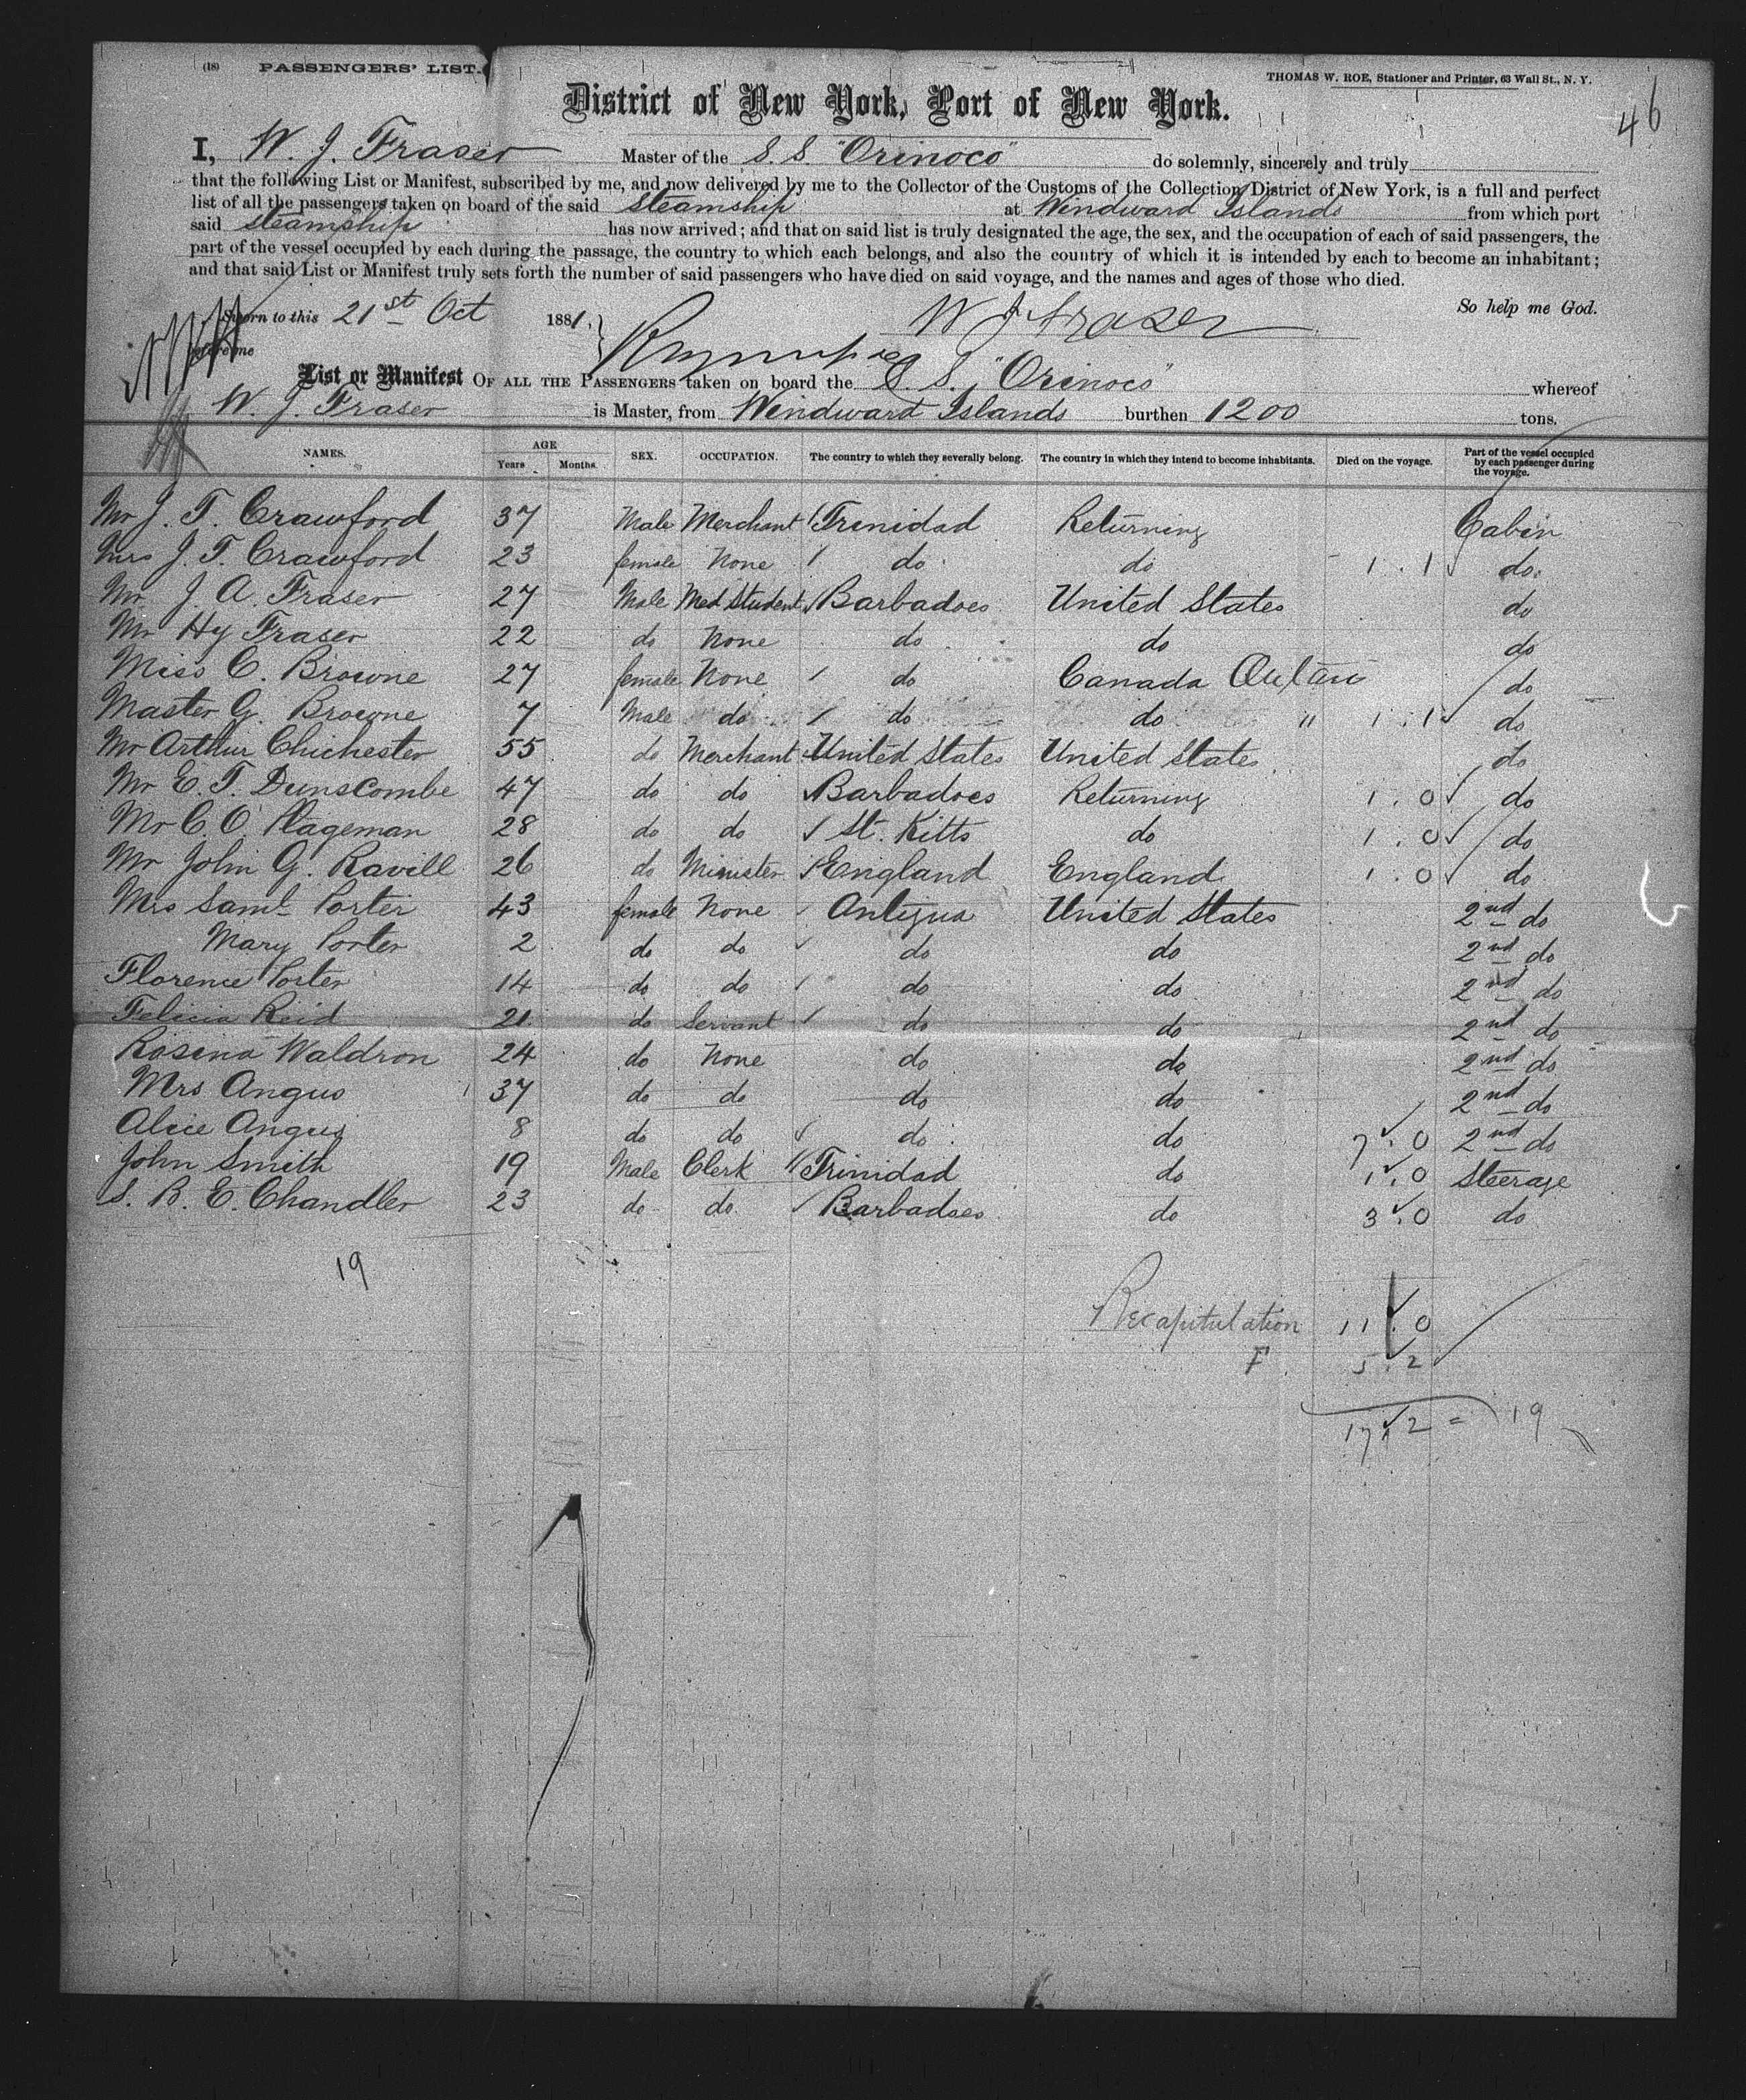 (18) PASSENGERS' LIST.
THOMAS W. ROE, Stationer and Printer, 63 Wall St., N. Y.
46
District of New York, Port of New York.
I, W. J. Fraser Master of the S. S. "Orinoco" do solemnly, sincerely and truly
that the following List or Manifest, subscribed by me, and now delivered by me to the Collector of the Customs of the Collection District of New York, is a full and perfect
list of all the passengers taken on board of the said Steamship at Windward Islands from which port
said Steamship has now arrived; and that on said list is truly designated the age, the sex, and the occupation of each of said passengers, the
part of the vessel occupied by each during the passage, the country to which each belongs, and also the country of which it is intended by each to become an inhabitant;
and that said List or Manifest truly sets forth the number of said passengers who have died on said voyage, and the names and ages of those who died.
So help me God.
Sworn to this 21st Oct 1881. W J Fraser
before me
List or Manifest OF ALL THE PASSENGERS taken on board the S. S. "Orinoco" whereof
W. J. Fraser is Master, from Windward Islands burthen 1200 tons.
NAMES. AGE Years. Months. SEX. OCCUPATION. The country to which they severally belong. The country in which they intend to become inhabitants. Died on the voyage. Part of the vessel occupied by each passenger during the voyage.
Mr J. T. Crawford 37 Male Merchant Trinidad Returning Cabin
Mrs J. T. Crawford 23 female None do do 1 . 1 do
Mr J. A. Fraser 27 Male Med Student Barbadoes United States do
Mr Hy Fraser 22 do None do do do
Miss C. Browne 27 female None do Canada do
Master G. Browne 7 Male do do do " 1 . 1 do
Mr Arthur Chichester 55 do Merchant United States United States do
Mr E. T. Dunscombe 47 do do Barbadoes Returning 1 . 0 do
Mr C. O. Hageman 28 do do St. Kitts do 1 . 0 do
Mr John G. Ravill 26 do Minister England England 1 . 0 do
Mrs Saml Porter 43 female None Antigua United States 2nd do
Mary Porter 2 do do do do 2nd do
Florence Porter 14 do do do do 2nd do
Felicia Reid 21 do Servant do do 2nd do
Rosena Waldron 24 do None do do 2nd do
Mrs Angus 37 do do do do 2nd do
Alice Angus 8 do do do do 7 . 0 2nd do
John Smith 19 Male Clerk Trinidad do 1 . 0 Steerage
S. B. E. Chandler 23 do do Barbadoes do 3 . 0 do
19
Recapitulation 11 . 0
F 5 . 2
17 . 2 = 19